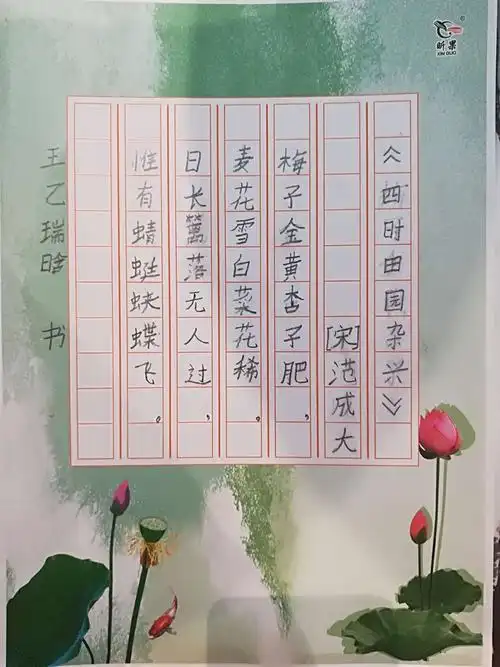 《四时由园杂兴》
[宋]范成大
梅子金黄杏子肥，
麦花雪白菜花稀。
日长篱落无人过，
惟有蜻蜓蛱蝶飞。
王乙瑞晗 书
昕果
XIN GUO